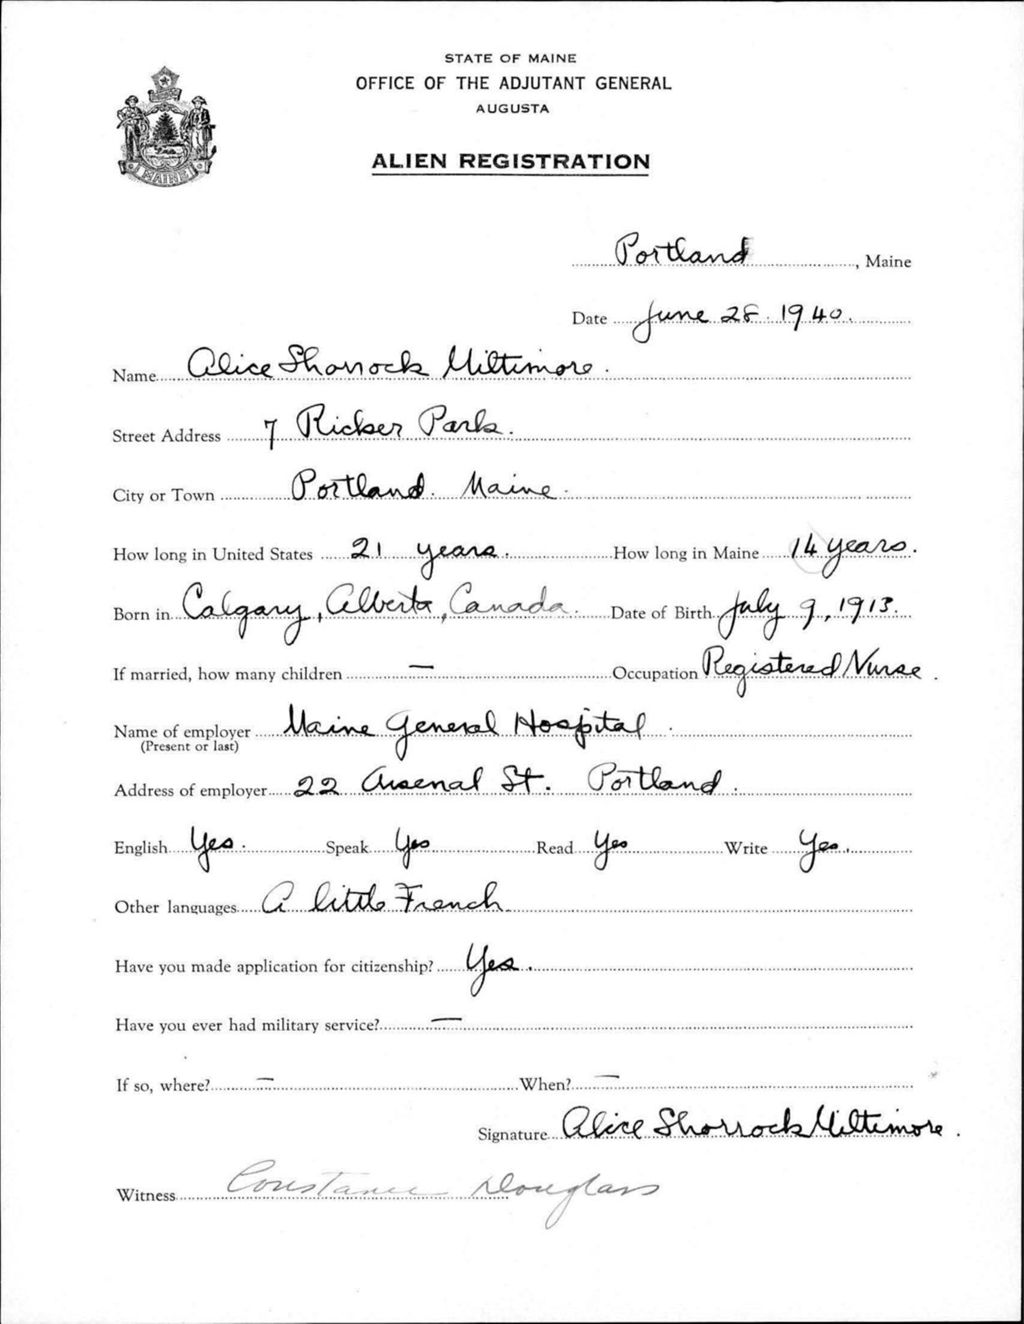 STATE OF MAINE
OFFICE OF THE ADJUTANT GENERAL
AUGUSTA
ALIEN REGISTRATION
MAINE
Portland, Maine
Date June 28. 1940.
Name Alice Shorrock Miltimore.
Street Address 7 Ricker Park.
City or Town Portland. Maine.
How long in United States 21 years. How long in Maine 14 years.
Born in Calgary, Alberta, Canada. Date of Birth July 9, 1913.
If married, how many children — Occupation Registered Nurse.
Name of employer Maine General Hospital.
(Present or last)
Address of employer 22 Arsenal St. Portland.
English Yes. Speak Yes Read Yes Write Yes.
Other languages A little French
Have you made application for citizenship? Yes.
Have you ever had military service? —
If so, where? — When? —
Signature Alice Shorrock Miltimore.
Witness Constance Douglass